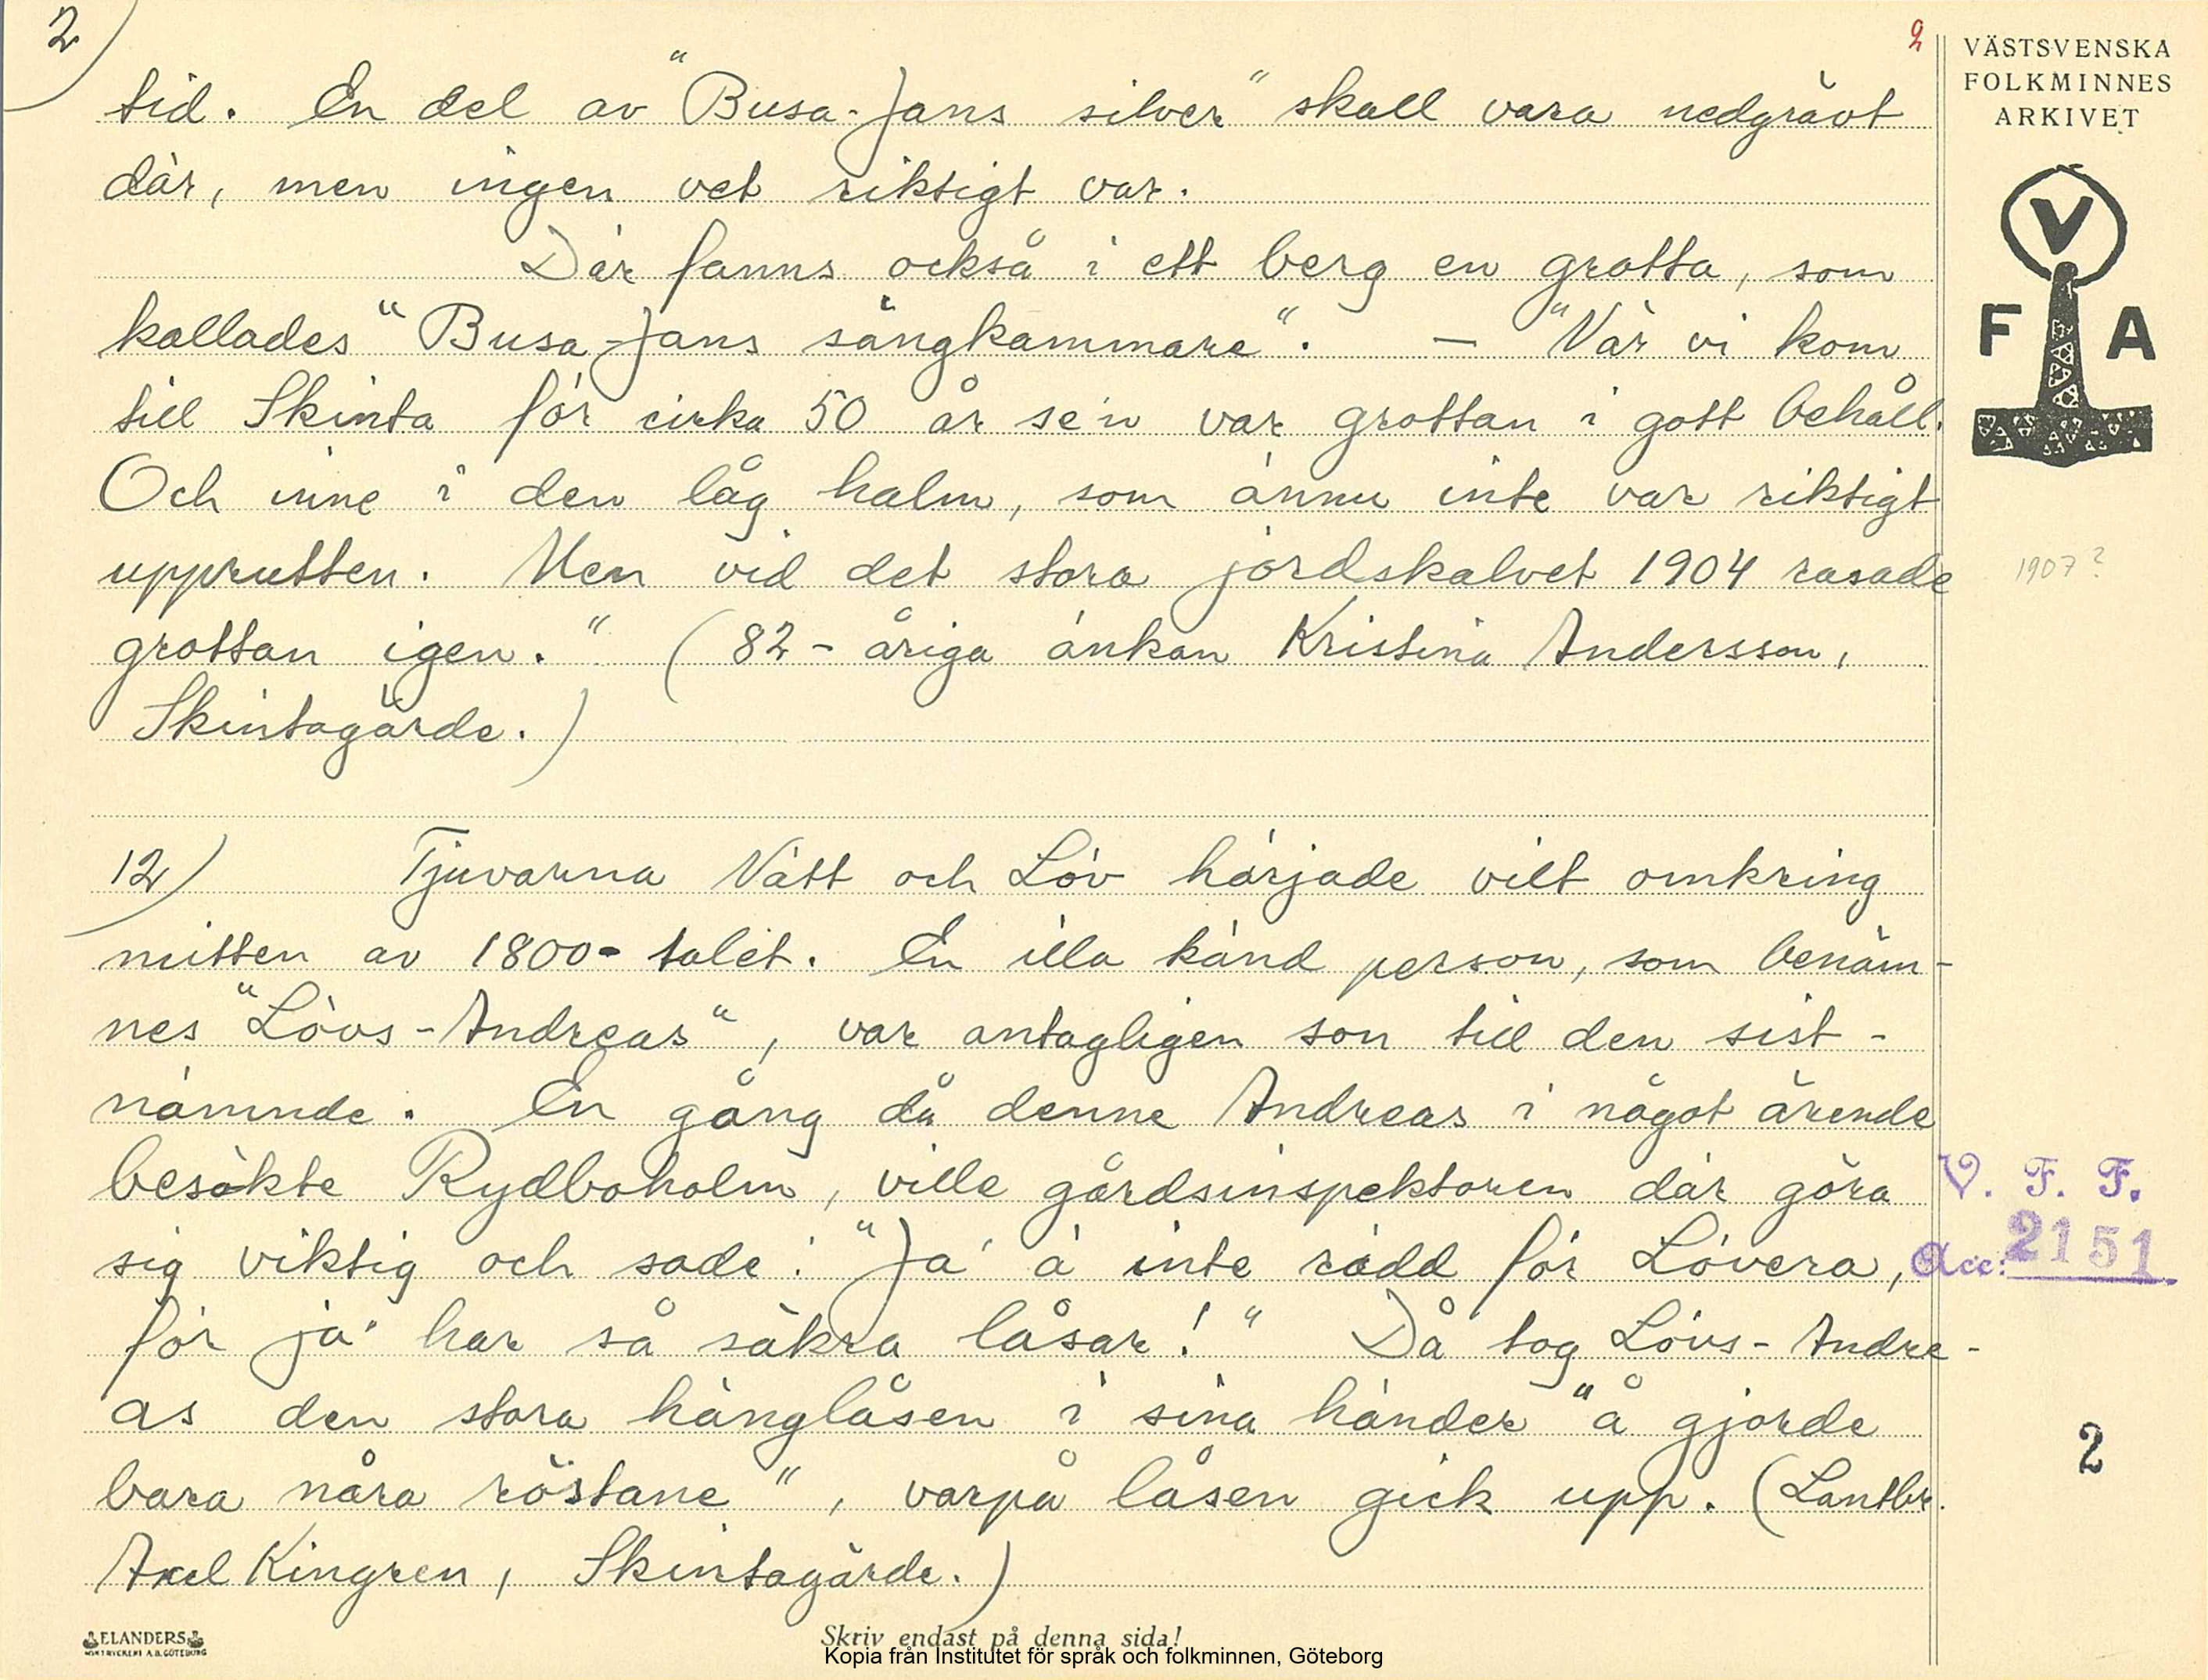 2)
2
VÄSTSVENSKA
FOLKMINNES
ARKIVET
V
F A
tid. En del av "Busa-Jans silver" skall vara nedgrävt
där, men ingen vet riktigt var.
Där fanns också i ett berg en grotta, som
kallades "Busa-Jans sängkammare". — "När vi kom
till Skinta för cirka 50 år se'n var grottan i gott behåll.
Och inne i den låg halm, som ännu inte var riktigt
upprutten. Men vid det stora jordskalvet 1904 rasade
1907?
grottan igen." (82-åriga änkan Kristina Andersson,
Skintagärde.)
12) Tjuvarna Nätt och Löv härjade vilt omkring
mitten av 1800-talet. En illa känd person, som benäm-
nes "Lövs-Andreas", var antagligen son till den sist-
nämnde. En gång då denne Andreas i något ärende
besökte Rydboholm, ville gårdsinspektoren där göra
sig viktig och sade: "Ja' ä inte rädd för Lövera,
för ja' har så säkra låsar!" Då tog Lövs-Andre-
as den stora hänglåsen i sina händer "å gjorde
bara nåra röstane", varpå låsen gick upp. (Lantbr.
Axel Kingren, Skintagärde.)
V. F. F.
Acc: 2151
2
ELANDERS
Skriv endast på denna sida!
Kopia från Institutet för språk och folkminnen, Göteborg